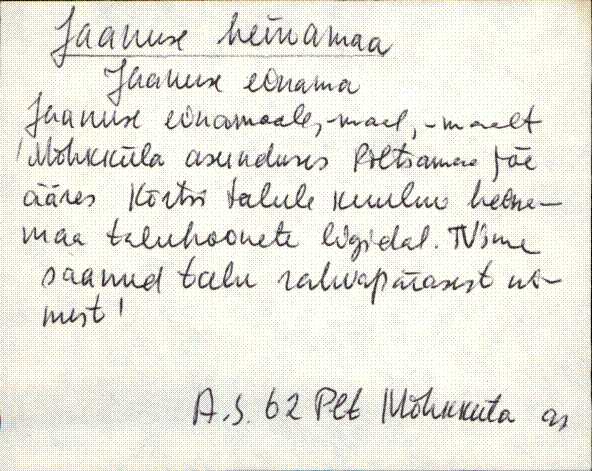 Jaanuse heinamaa
Jaanuse einama
Jaanuse einamaale, -maal, -maalt
'Mõhkküla asunduses Põltsamaa jõe
ääres Kõrtsi talule kuuluv heina-
maa taluhoonete ligidal. Nime
saanud talu rahvapärasest ni-
mest'
A.S. 62 Plt Mõhkküla as